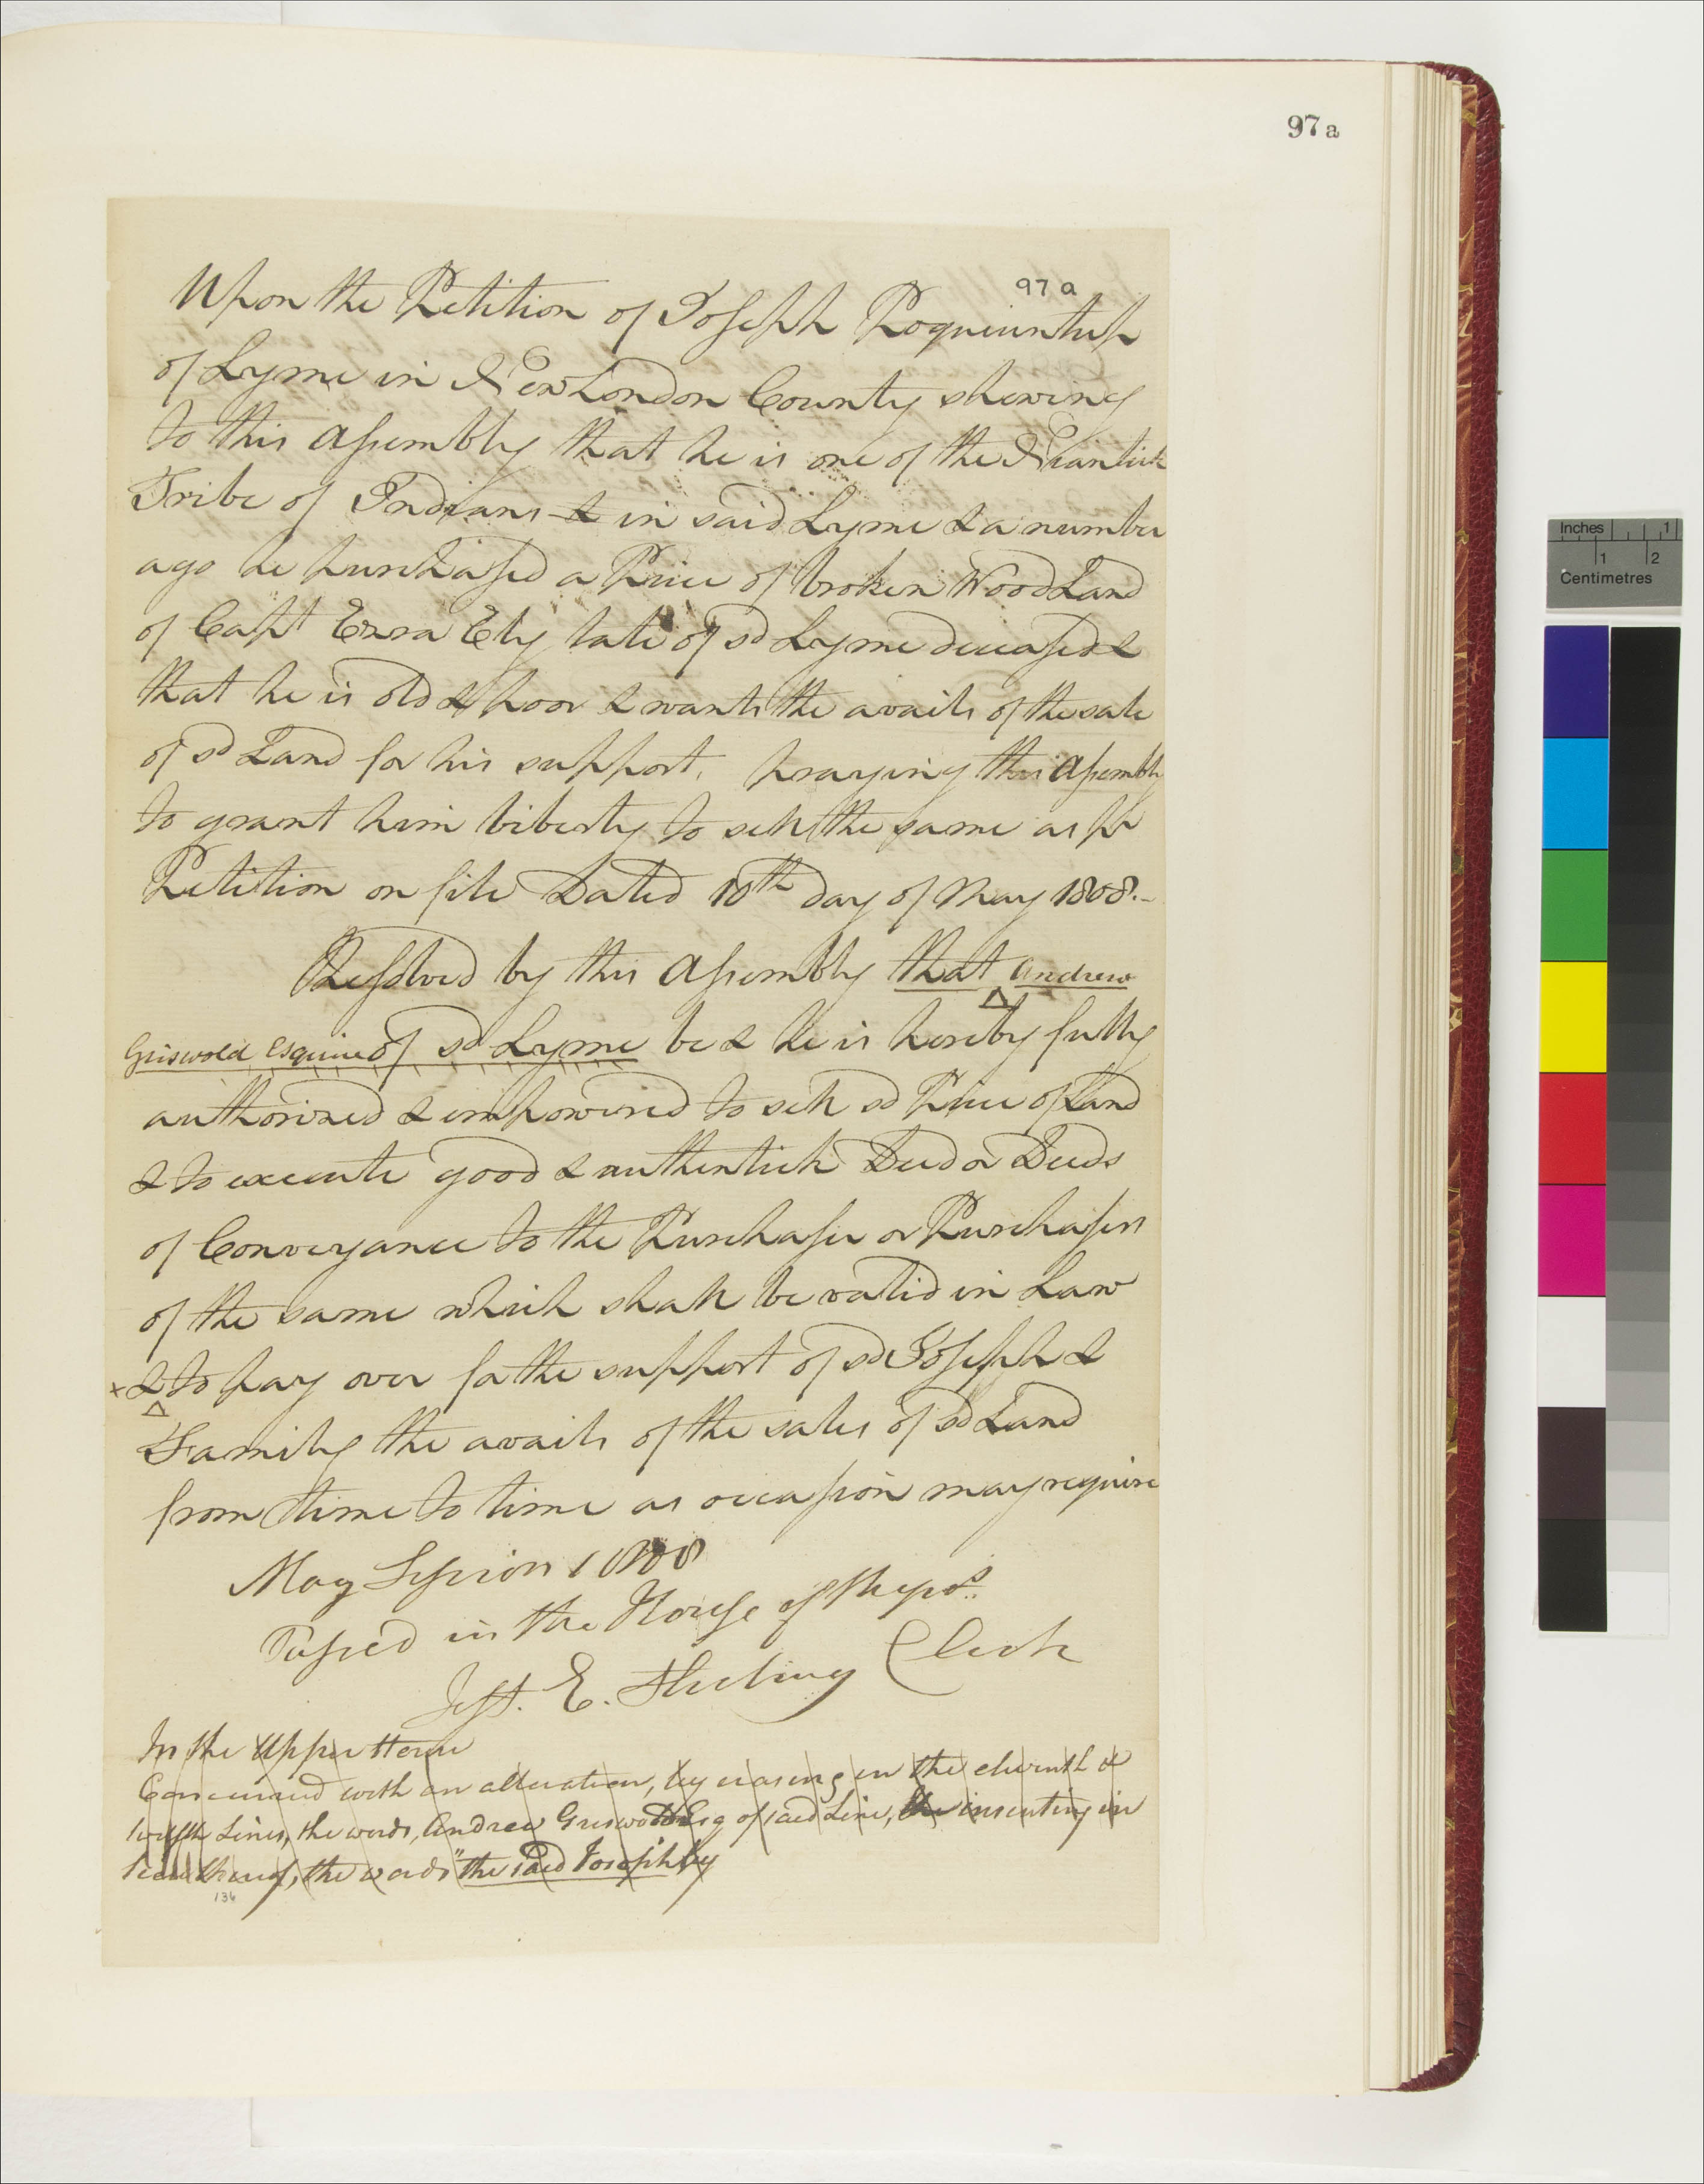 97a
97 a
Upon the Petition of Joseph Poquiuntup
of Lyme in New London County shewing
to this Assembly that he is one of the Niantick
Tribe of Indians & in said Lyme & a number
ago he purchased a Piece of broken Wood Land
of Capt Ezra Ely late of sd Lyme deceased &
that he is old & poor & wants the avails of the sale
of sd Land for his support, praying this Assembly
to grant him liberty to sell the same as pr
Petition on file Dated 10th day of May 1808.-
Resolved by this Assembly that Andrew
Griswold Esquire of sd Lyme be & he is hereby fully
authorized & impowered to sell sd Piece of Land
& to execute good & authentick Deed or Deeds
of Conveyance to the Purchaser or Purchasers
of the same which shall be valid in Law
+ & to pay over for the support of sd Joseph &
Family the avails of the sales of sd Land
from time to time as occasion may require
May Session 1808
Passed in the House of Reps.
Test. E. Sterling Clerk
In the Upper House
Concurred with an alteration, by erasing in the eleventh &
twelfth Lines, the words, Andrew Griswold Esq of said Lime, inserting in
thereof, the words "the said Joseph by
136
Inches 1
1 2
Centimetres